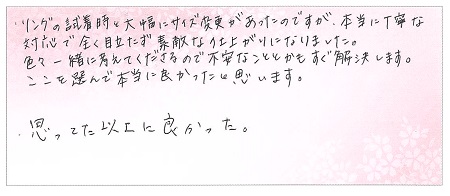 リングの試着時と大幅にサイズ変更があったのですが、本当に丁寧な
対応で全く目立たず素敵な仕上がりになりました。
色々一緒に考えてくださるので不安なこととかもすぐ解決します。
ここを選んで本当に良かったと思います。
思ってた以上に良かった。